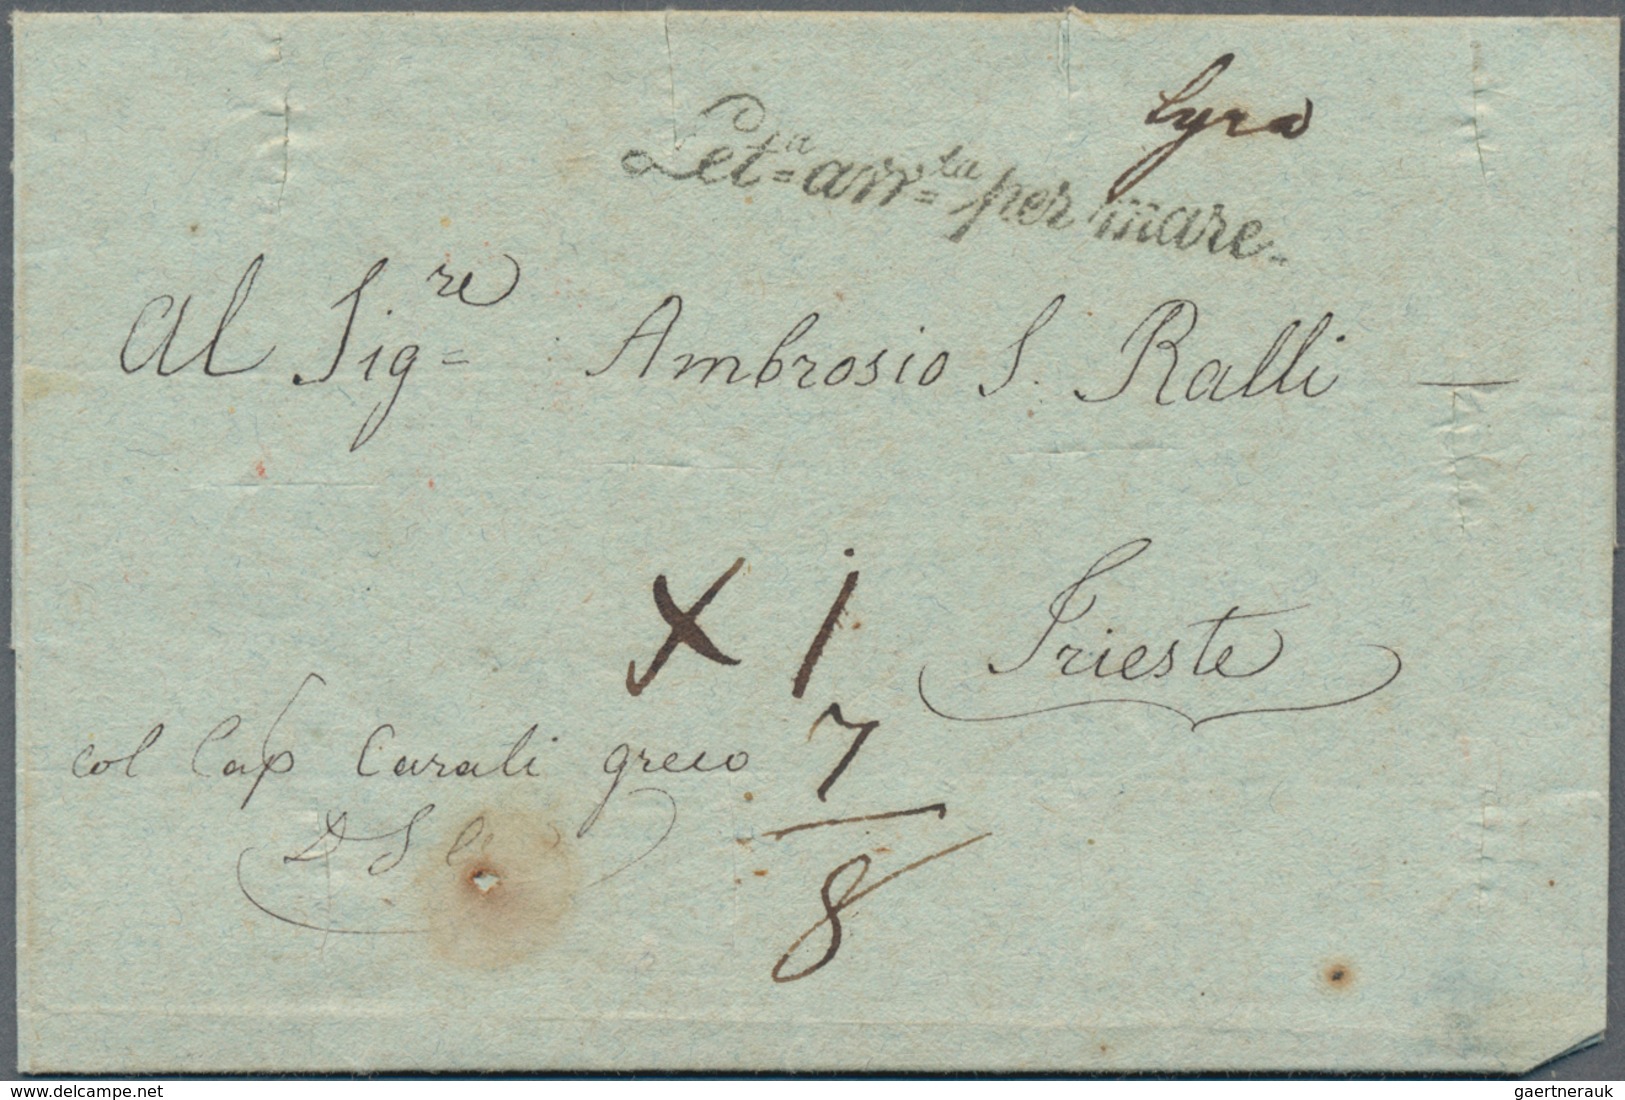 Syra
Let.a arr.ta per mare.
Al Sig.re Ambrosio S. Ralli
X 1
Trieste
7
col Cap Carali greco
8
© www.delcampe.net
gaertnerauk